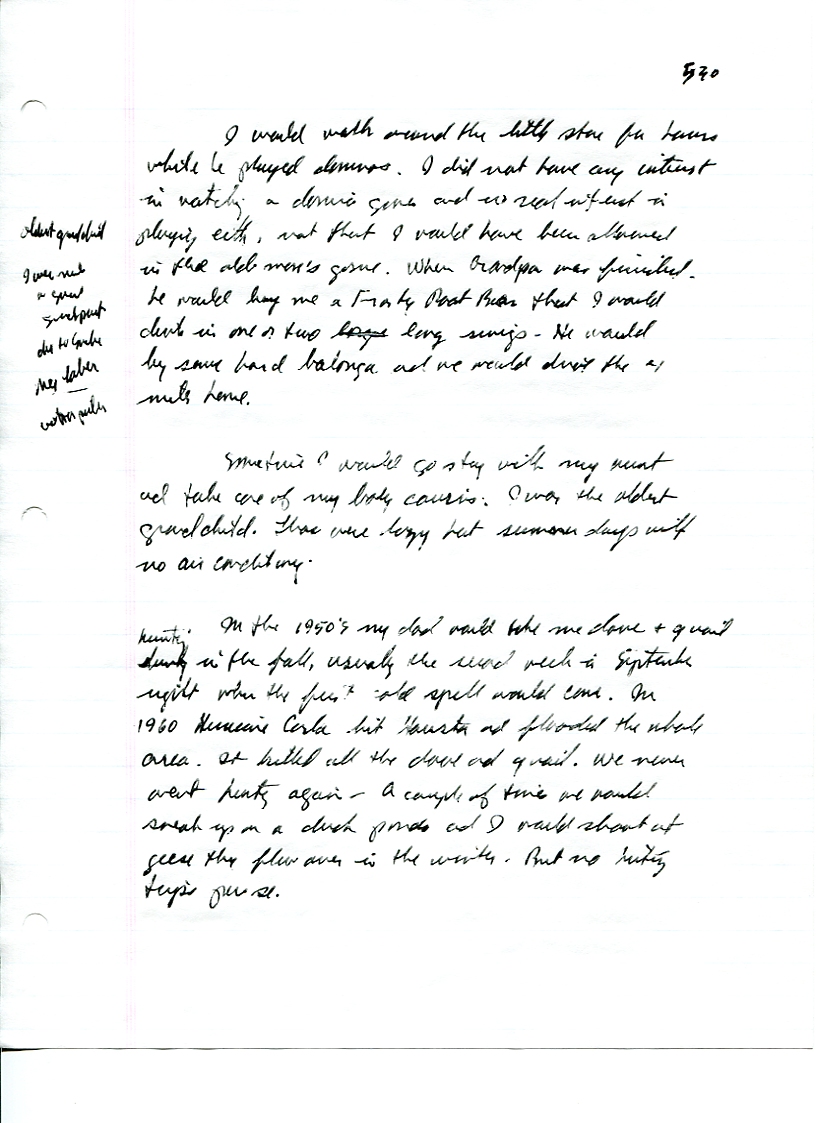 520
I would walk around the little store for hours
while he played dominos. I did not have any interest
in watching a domino game and no real interest in
playing either, not that I would have been allowed
in the old men's game. When Grandpa was finished.
he would buy me a Frosty Root Beer that I would
drink in one or two large long swigs - He would
by some hard balonga and we would drive the
miles home.
oldest grandchild
I was not
a great
Sometime I would go stay with my aunt
and take care of my baby cousins. I was the oldest
grandchild. Those were lazy hot summer days with
no air conditiong.
hunting
In the 1950's my dad would take me dove + quail
in the fall, usually the second week in September
right when the first cold spell would come. In
1960 Hurricane Carla hit Houston and flooded the whole
area. It killed all the dove and quail. We never
went hunting again - A couple of times we would
sneak up on a duck ponds and I would shoot at
geese they flew over in the winter. But no hunting
trips per se.